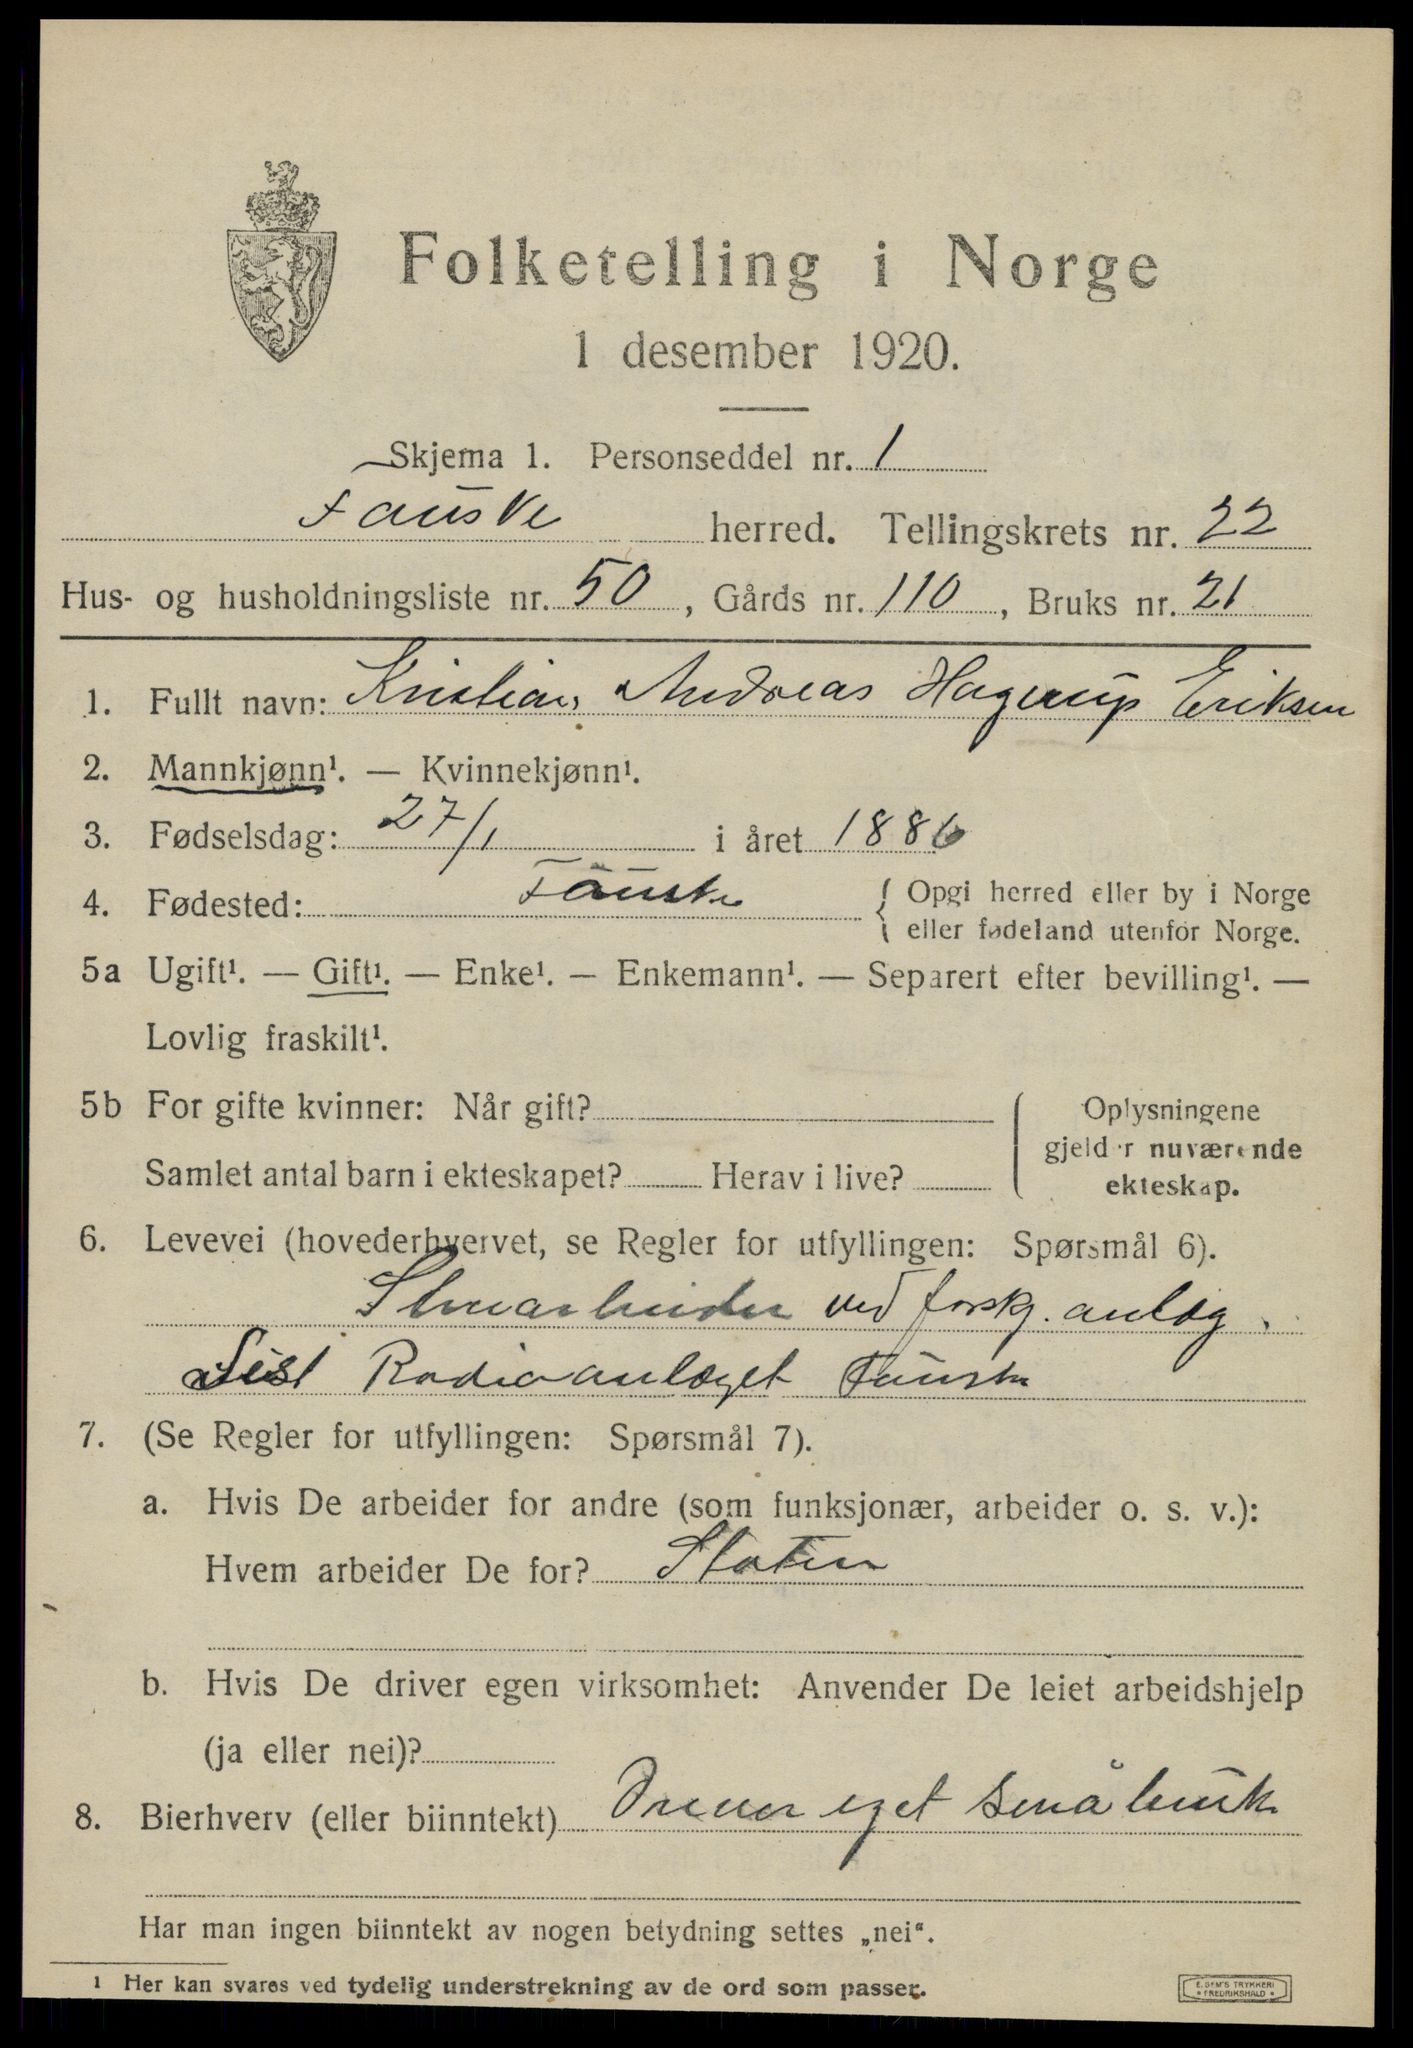 Folketelling i Norge
1 desember 1920.
Skjema 1. Personseddel nr. 1
Fauske herred. Tellingskrets nr. 22
Hus- og husholdningsliste nr. 50, Gårds nr. 110, Bruks nr. 21
1. Fullt navn: Kristian Andreas Hagerup Eriksen
2. Mannkjønn¹. — Kvinnekjønn¹.
3. Fødselsdag: 27/1 i året 1886
4. Fødested: Fauske { Opgi herred eller by i Norge
eller fødeland utenfor Norge.
5a Ugift¹. — Gift¹. — Enke¹. — Enkemann¹. — Separert efter bevilling¹. —
Lovlig fraskilt¹.
5b For gifte kvinner: Når gift?
Samlet antal barn i ekteskapet? Herav i live?
Oplysningene
gjelder nuværende
ekteskap.
6. Levevei (hovederhvervet, se Regler for utfyllingen: Spørsmål 6).
ved forskj. anlæg.
Sist Radioanlæget Fauske
7. (Se Regler for utfyllingen: Spørsmål 7).
a. Hvis De arbeider for andre (som funksjonær, arbeider o. s. v.):
Hvem arbeider De for? Staten
b. Hvis De driver egen virksomhet: Anvender De leiet arbeidshjelp
(ja eller nei)?
8. Bierhverv (eller biinntekt) Driver eget småbruk
Har man ingen biinntekt av nogen betydning settes „nei“.
1 Her kan svares ved tydelig understrekning av de ord som passer.
E. SEM'S TRYKKERI
• FREDRIKSHALD •